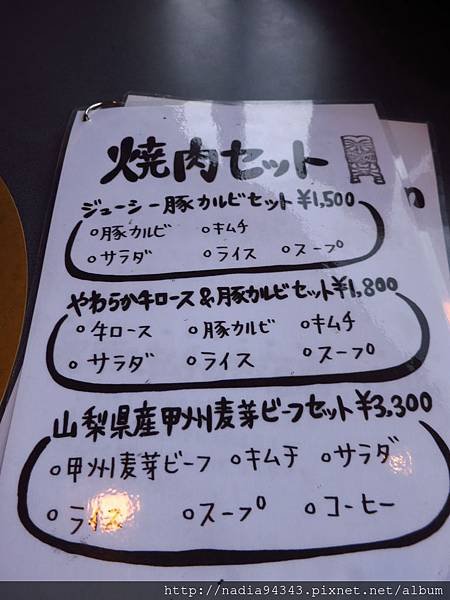 焼肉セット
ジューシー豚カルビセット ¥1,500
○豚カルビ ○キムチ
○サラダ ○ライス ○スープ
やわらか牛ロース&豚カルビセット¥1,800
○牛ロース ○豚カルビ ○キムチ
○サラダ ○ライス ○スープ
山梨県産甲州麦芽ビーフセット¥3,300
○甲州麦芽ビーフ ○キムチ ○サラダ
○ライス ○スープ ○コーヒー
http://nadia94343.pixnet.net/album